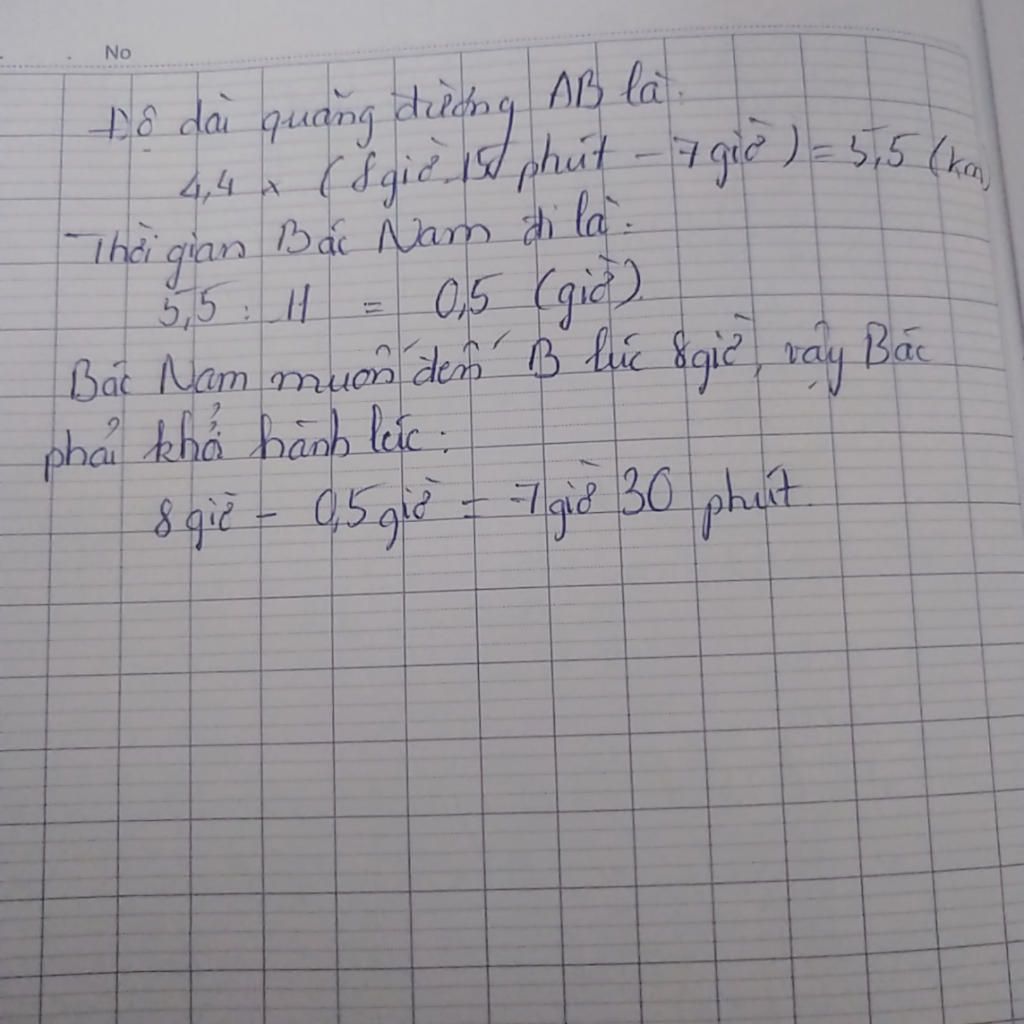 No
Độ dài quãng đường AB là:
4,4 x (8giờ 15 phút - 7giờ) = 5,5 (km)
Thời gian Bác Nam đi là:
5,5 : 11 = 0,5 (giờ)
Bác Nam muốn đến B lúc 8giờ, vậy Bác
phải khởi hành lúc:
8giờ - 0,5giờ = 7giờ 30 phút